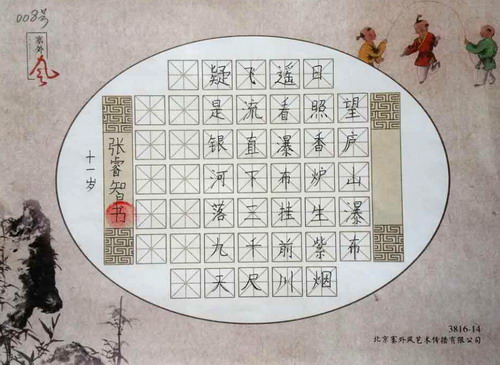 塞外
风
望庐山瀑布
日照香炉生紫烟
遥看瀑布挂前川
飞流直下三千尺
疑是银河落九天
张睿智书
十一岁
3816-14
北京塞外风艺术传播有限公司